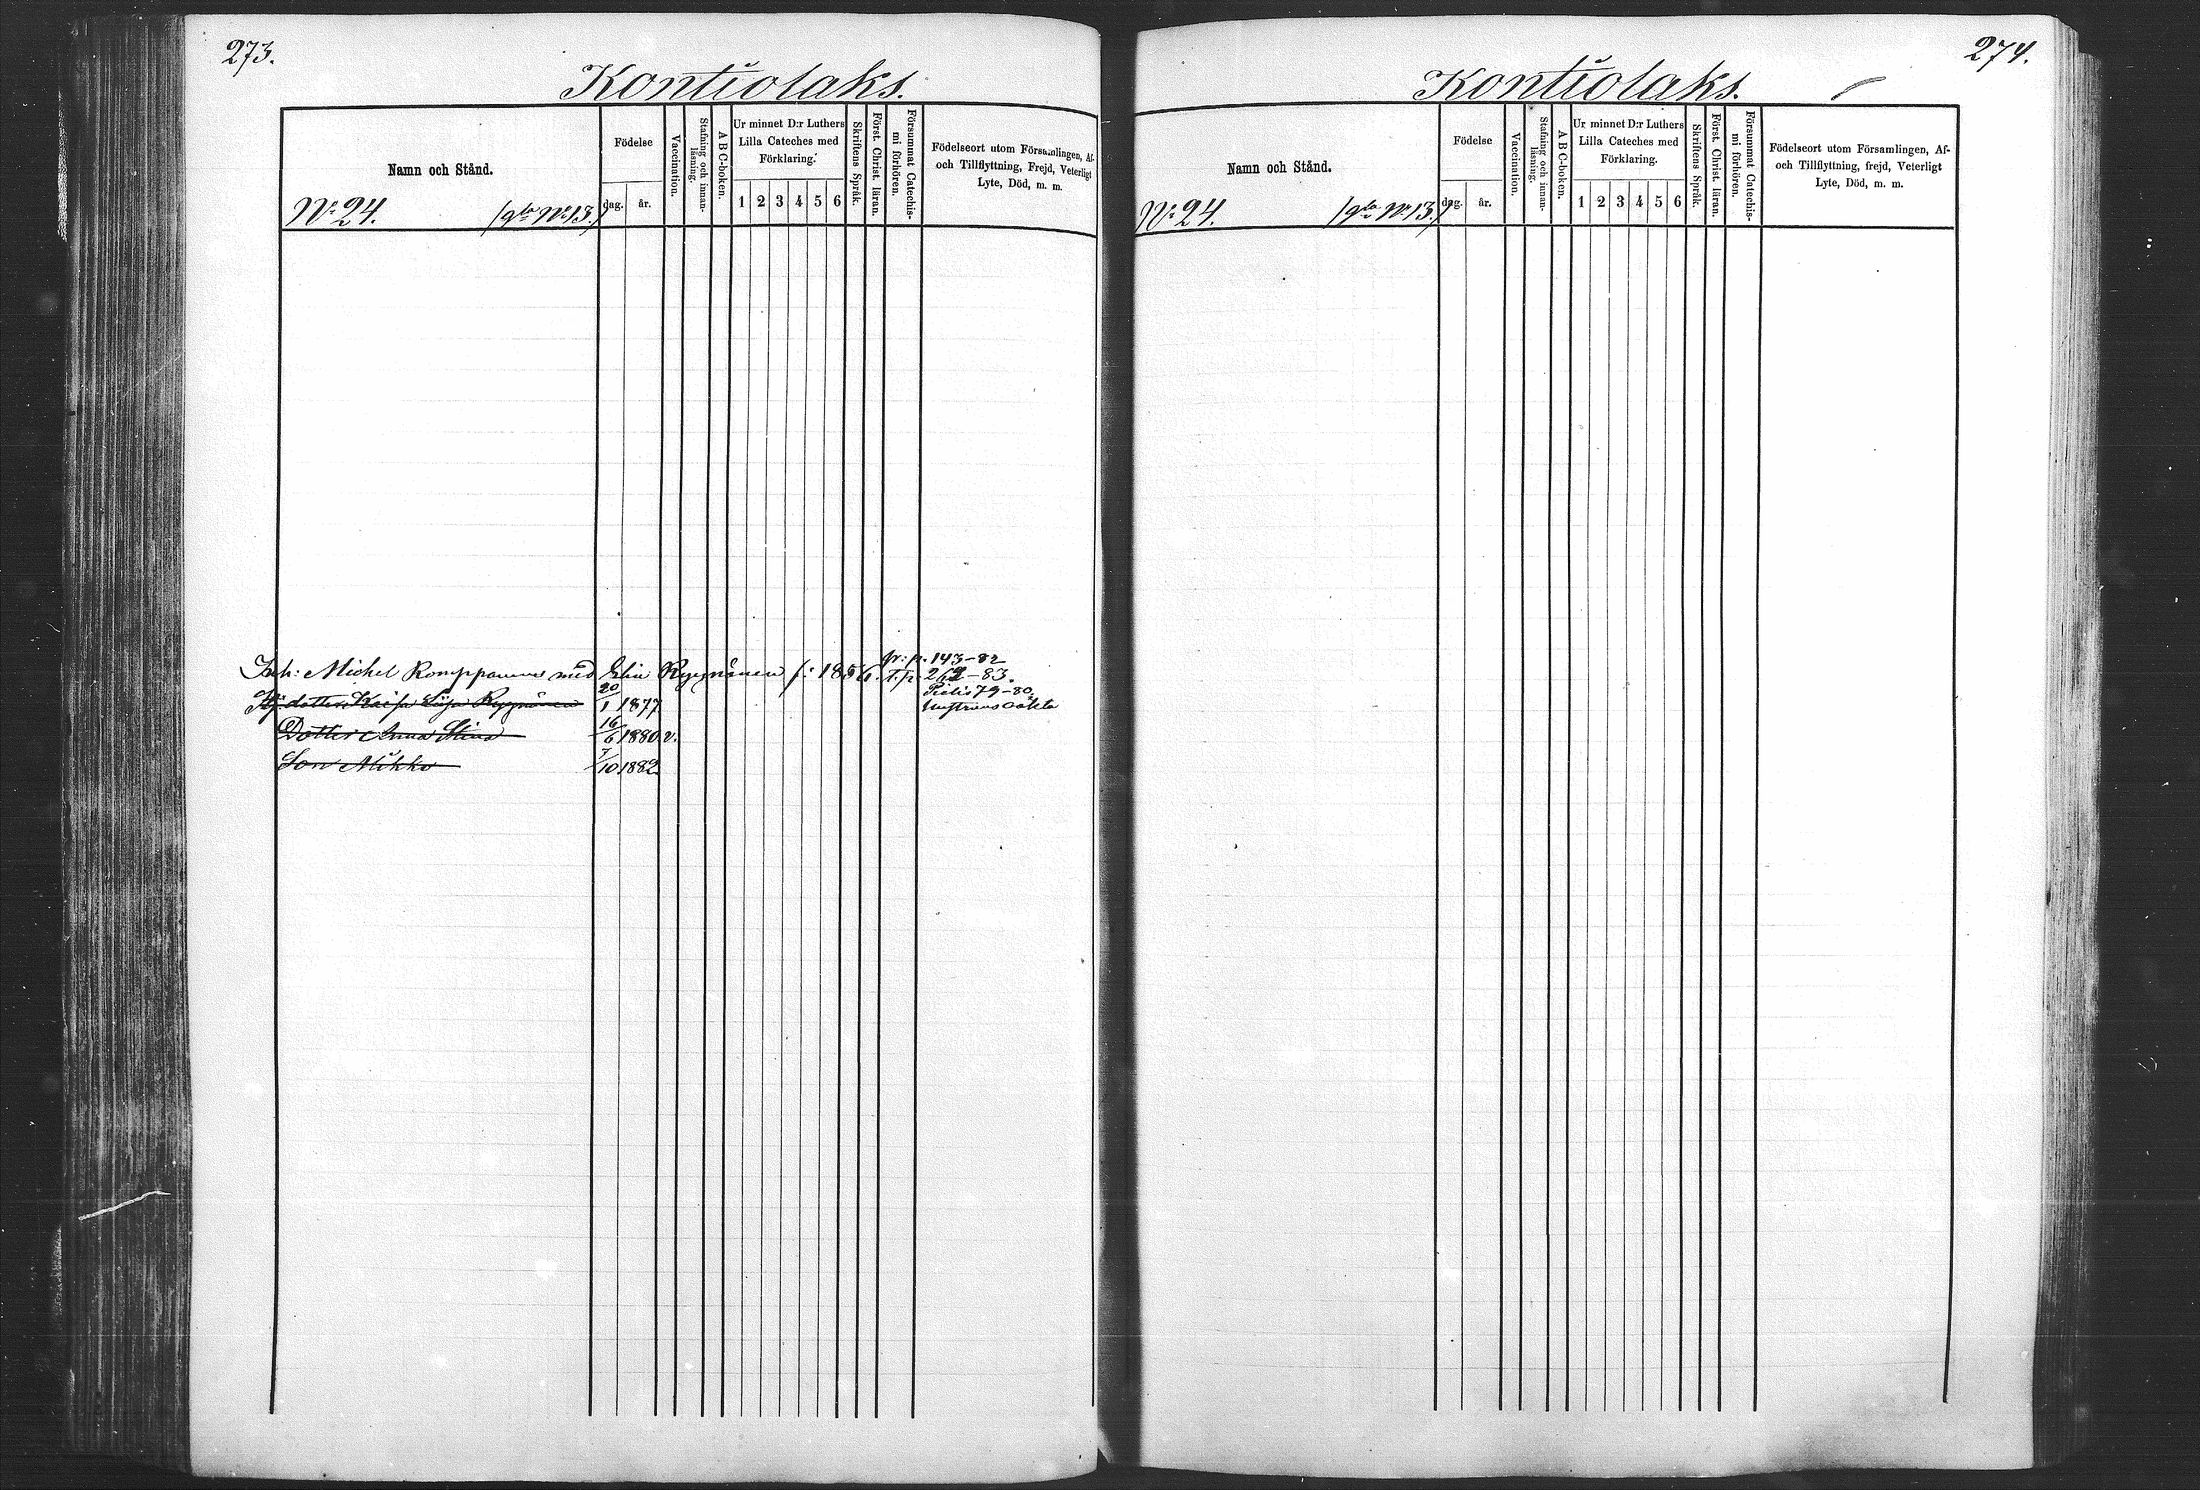 273.
Kontiolaks.
Namn och Stånd.
Födelse
dag. år.
Vaccination.
Stafning och innan-
läsning.
A B C-boken.
Ur minnet D:r Luthers
Lilla Cateches med
Förklaring.
1 2 3 4 5 6
Skriftens Språk.
Först. Christ. läran.
Försummat Catechis-
mi förhören.
Födelseort utom Församlingen, Af-
och Tillflyttning, Frejd, Veterligt
Lyte, Död, m. m.
No 24. (gla No 13.)
fr: p. 143-82
Inh: Michel Romppanens med Elin Ryynänen f: 1856. T.p. 262-83.
dotter Kaisa Liisa Ryynänen 20/1 1877 Pielis 79-80
Dotter Anna Stina 16/6 1880 v.
Son Mikko 7/10 1882
274.
Kontiolaks.
Namn och Stånd.
Födelse
dag. år.
Vaccination.
Stafning och innan-
läsning.
A B C-boken.
Ur minnet D:r Luthers
Lilla Cateches med
Förklaring.
1 2 3 4 5 6
Skriftens Språk.
Först. Christ. läran.
Försummat Catechis-
mi förhören.
Födelseort utom Församlingen, Af-
och Tillflyttning, frejd, Veterligt
Lyte, Död, m. m.
No 24. (gla No 13.)